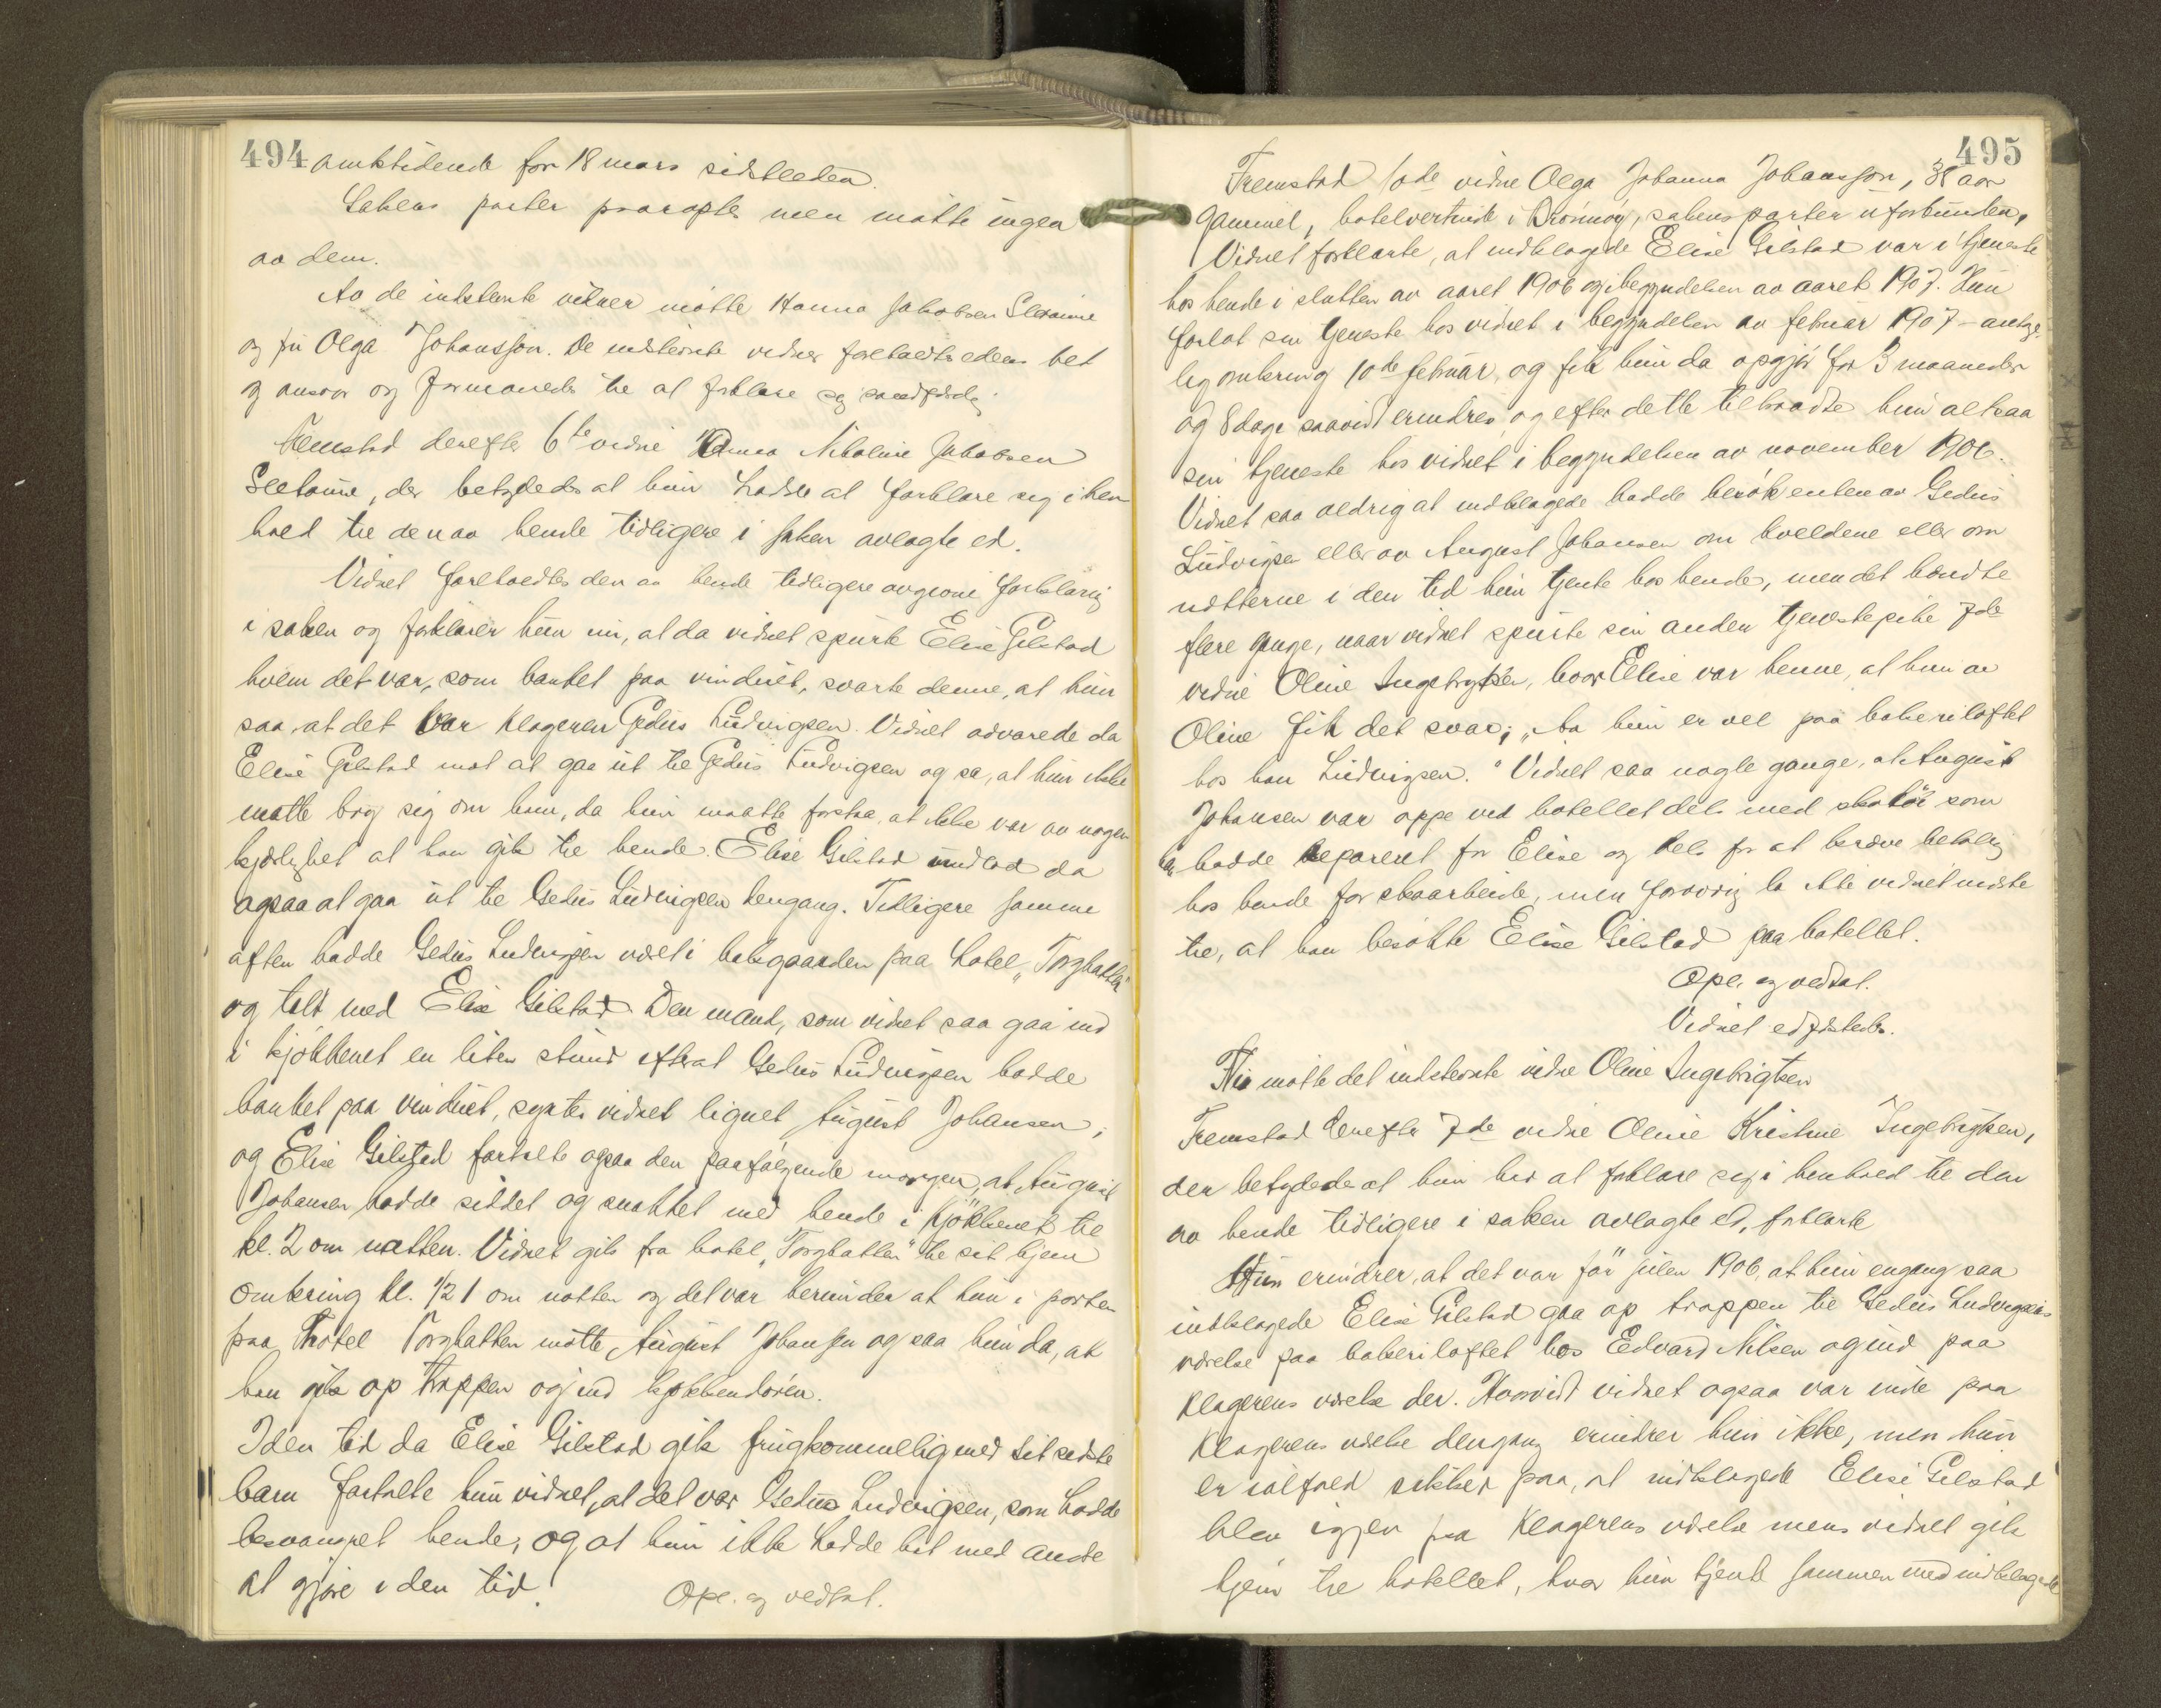 494 amtstidende for 18 mars sidstleden.
Sakens parter paaropte men mötte ingen
av dem.
Av de indstevnte vidner mötte Hanna Jakobsen Sletaune
og fru Olga Johansson. De indstevnte vidner foreholdtes edens bet
og ansvar og formanedes til at forklare sig sandfærdig.
Fremstod derefter 6te vidne Hanna Nikoline Jakobsen
Sletaune, der betydedes at hun hadde at forklare sig i hen-
hold til den av hende tidligere i saken avlagte ed.
Vidnet foreholdtes den av hende tidligere avgivne forklaring
i saken og forklarer hun nu, at da vidnet spurte Elise Gilstad
hvem det var, som banket paa vinduet, svarte denne, at hun
saa, at det var klageren Gedius Ludvigsen. Vidnet advarede da
Elise Gilstad mot at gaa ut til Gedius Ludvigsen og sa, at hun ikke
maatte bry sig om ham, da hun maatte forstaa, at ikke var av nogen
kjærlighet at han gik til hende. Elise Gilstad undlod da
ogsaa at gaa ut til Gedius Ludvigsen dengang. Tidligere samme
aften hadde Gedius Ludvigsen været i bakgaarden paa Hotel "Torghatten"
og talt med Elise Gilstad. Den mand, som vidnet saa gaa ind
i kjökkenet en liten stund efterat Gedius Ludvigsen hadde
banket paa vinduet, syntes vidnet lignet August Johansen,
og Elise Gilstad fortalte ogsaa den paafölgende morgen, at August
Johansen hadde siddet og snakket med hende i kjökkenet til
kl. 2 om natten. Vidnet gik fra hotel "Torghatten" til sit hjem
omkring kl. 1/2 1 om natten og det var herunder at hun i porten
paa Hotel Torghatten mötte August Johansen og saa hun da, at
han gik op trappen og ind kjøkkendören.
I den tid da Elise Gilstad gik frugtsommelig med sit sidste
barn fortalte hun vidnet, at det var Gedius Ludvigsen, som hadde
besvangret hende, og at hun ikke hadde hat med andre
at gjøre i den tid.
Opl. og vedtat.
495
Fremstod 10de vidne Olga Johanna Johansson, 38 aar
gammel, hotelvertinde i Brönnöy, sakens parter uforbunden.
Vidnet forklarte, at indklagede Elise Gilstad var i tjeneste
hos hende i slutten av aaret 1906 og i begyndelsen av aaret 1907. Hun
forlot sin tjeneste hos vidnet i begyndelsen av februar 1907 – antage-
lig omkring 10de februar, og fik hun da opgjör for 3 maaneder
og 8 dage saavidt erindres og efter dette tiltraadte hun altsaa
sin tjeneste hos vidnet i begyndelsen av november 1906.
Vidnet saa aldrig at indklagede hadde besök enten av Gedius
Ludvigsen eller av August Johansen om kveldene eller om
nætterne i den tid hun tjente hos hende, men det hændte
flere gange, naar vidnet spurte sin anden tjenestepike 7de
vidne Oline Ingebrigtsen, hvor Elise var henne, at hun av
Oline fik det svar; "Aa hun er vel paa bakeriloftet
hos han Ludvigsen." Vidnet saa nogle gange, at August
Johansen var oppe ved hotellet dels med skotöi som
han hadde reparert for Elise og dels for at kræve betaling
hos hende for skoarbeide, men forövrig la ikke vidnet mærke
til, at han besökte Elise Gilstad paa hotellet.
Opl. og vedtat.
Vidnet edfæstedes.
Nu mötte det indstevnte vidne Oline Ingebrigtsen
Fremstod derefter 7de vidne Oline Kristine Ingebrigtsen,
der betydedes at hun har at forklare sig i henhold til den
av hende tidligere i saken avlagte ed, forklarte
Hun erindrer, at det var för julen 1906, at hun engang saa
indklagede Elise Gilstad gaa op trappen til Gedius Ludvigsens
værelse paa bakeriloftet hos Edvard Nilsen og ind paa
klagerens værelse der. Hvorvidt vidnet ogsaa var inde paa
klagerens værelse dengang erindrer hun ikke, men hun
er ialfald sikker paa, at indklagede Elise Gilstad
blev igjen paa klagerens værelse mens vidnet gik
hjem til hotellet, hvor hun tjente sammen med indklagede